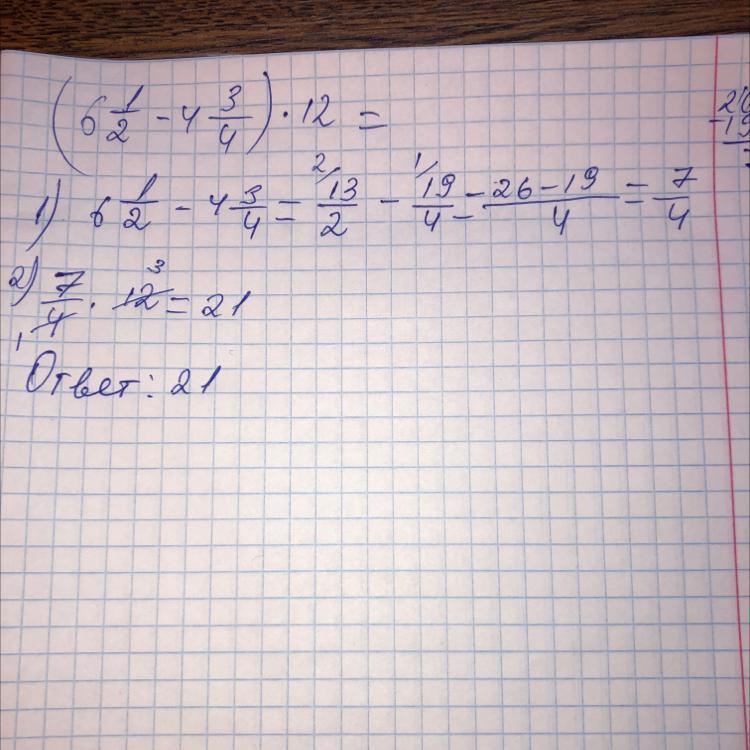 (6 1/2 - 4 3/4) · 12 =
1) 6 1/2 - 4 3/4 = 2/ 13/2 - 1/ 19/4 = 26-19/4 = 7/4
2) 7/4 · 12 = 21
1 3
Ответ: 21
-19